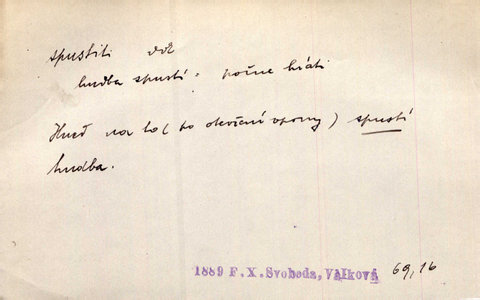 spustiti dok
hudba spustí = počne hráti
Hned na to (po otevření opony) spustí
hudba.
1889 F.X.Svoboda, Válková 69,16